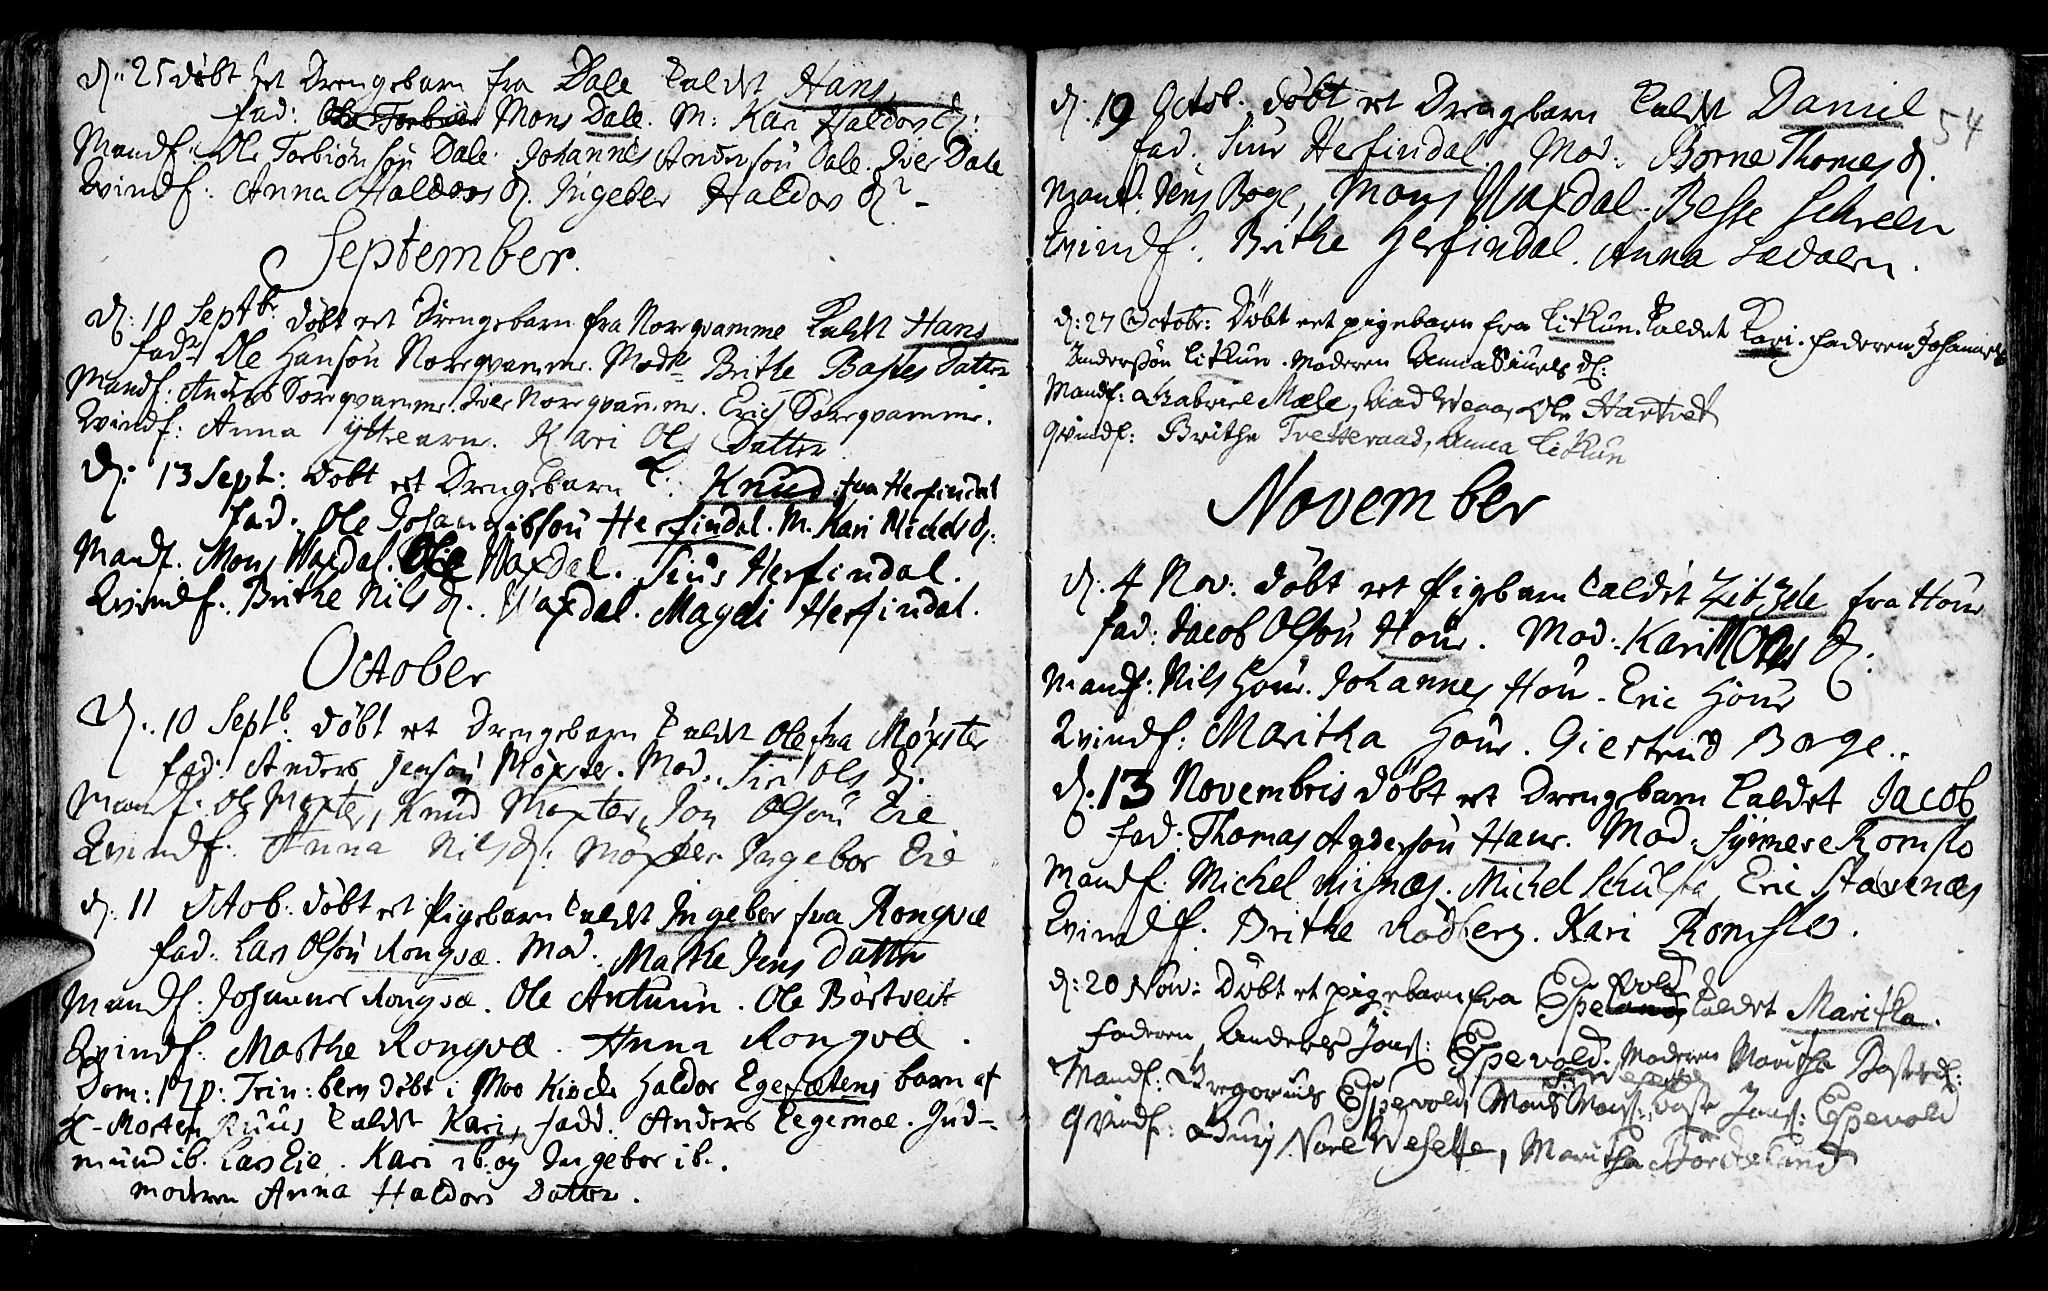 d: 25 døbt et Drengebarn fra Dale kaldet Hans
fad: Mons Dale. M: Kari Haldors d:
Mandf: Ole Torbiørnsøn Dale. Johannes Andersøn Dale. Iver Dale
Qvindf: Anna Haldors d. Ingeber Haldors d.
September.
d: 10 Septbr. døbt et Drengebarn fra Norqvamme kaldet Hans
fadr Ole Hansøn Norqvamme. Modr Brithe Bastes Datter
Mandf: Anders Sørqvamme. Iver Norqvamme. Erich Sørqvamme.
Qvindf: Anna Ytrearne. Kari Ols Datter
d: 13 Sept: døbt et Drengebarn k: Knud fra Herfindal
fad. Ole Johannissøn Herfindal. M. Kari Michels d:
Mandf. Mons Waxdal. Ole Waxdal. Siur Herfindal.
Qvindf: Brithe Nils d. Waxdal. Magdi Herfindal.
October
d: 10 Septb: døbt et Drengebarn kaldet Ole fra Møxter
fad: Anders Jensøn Møxter. Mod. Siri Ols d.
Mandf: Ole Møxter, Knud Møxter, Jon Olsøn Eie
Qvindf. Anna Nilsd: Møxter Ingebor Eie
d: 11 Octob: døbt et Pigebarn kaldet Ingeber fra Rongvæ
fad. Lars Olsøn Rongvæ. Mod. Marthe Jens Datter
Mandf: Johannes Rongvæ. Ole Antuun. Ole Børtveit
Qvindf: Marthe Rongvæ. Anna Rongvæ.
Dom: 17 p: Trin: blev døbt i Moo Kircke Haldor Egesætens barn af
H- Morten Ruus kaldet Kari, fadd: Anders Legernoe. Gud-
mund ib. Lars Eie. Kari ib: og Ingebor ib.
moderen Anna Haldors Datter.
54
d: 19 Octob. døbt et Drengebarn kaldet Daniel
fad. Siur Herfindal. Mod: Børne Thomes d.
Mandf: Jens Boge, Mons Waxdal. Besse Schreen
Qvindf: Brithe Herfindal. Anna Ladalen.
d: 27 Octobr: Døbt eet pigebarn fra Litlun kaldet Kari. Faderen Johannes
Andersøn Litlun. Moderen Anna Siurs d:
Mandf: Gabriel Mæle, Ole Hartvet
qvindf: Brithe Tvetteraas, Anna Litlun
November
d. 4 Nov: døbt et Pigebarn kaldet Zidzele fra Hour
fad: Jacob Olsøn Hour. Mod: Kari d:
Mandf: Nils Hour. Johannes Hour. Eric Hour
Qvindf: Maritha Hour. Giertrud Borge.
d. 13 Novembris døbt et Drengebarn kaldet Jacob
fad: Thomas Andersøn Hanr. Mod: Synneve Romslo
Mandf. Michel Michel Eric Stavenæs
Qvindf. Brithe Rødberg. Kari Romslo.
d: 20 Nov: Døbt et pigebarn fra Espevold kaldet Maritha.
Faderen Anders Jons: Espevold. Moderen Maritha Bastesd:
Mandf: Gregorius Espevold, Mons Mons: Baste Jons: Espevold
qvindf: Guri Nore Wesette, Maritha Børdseland